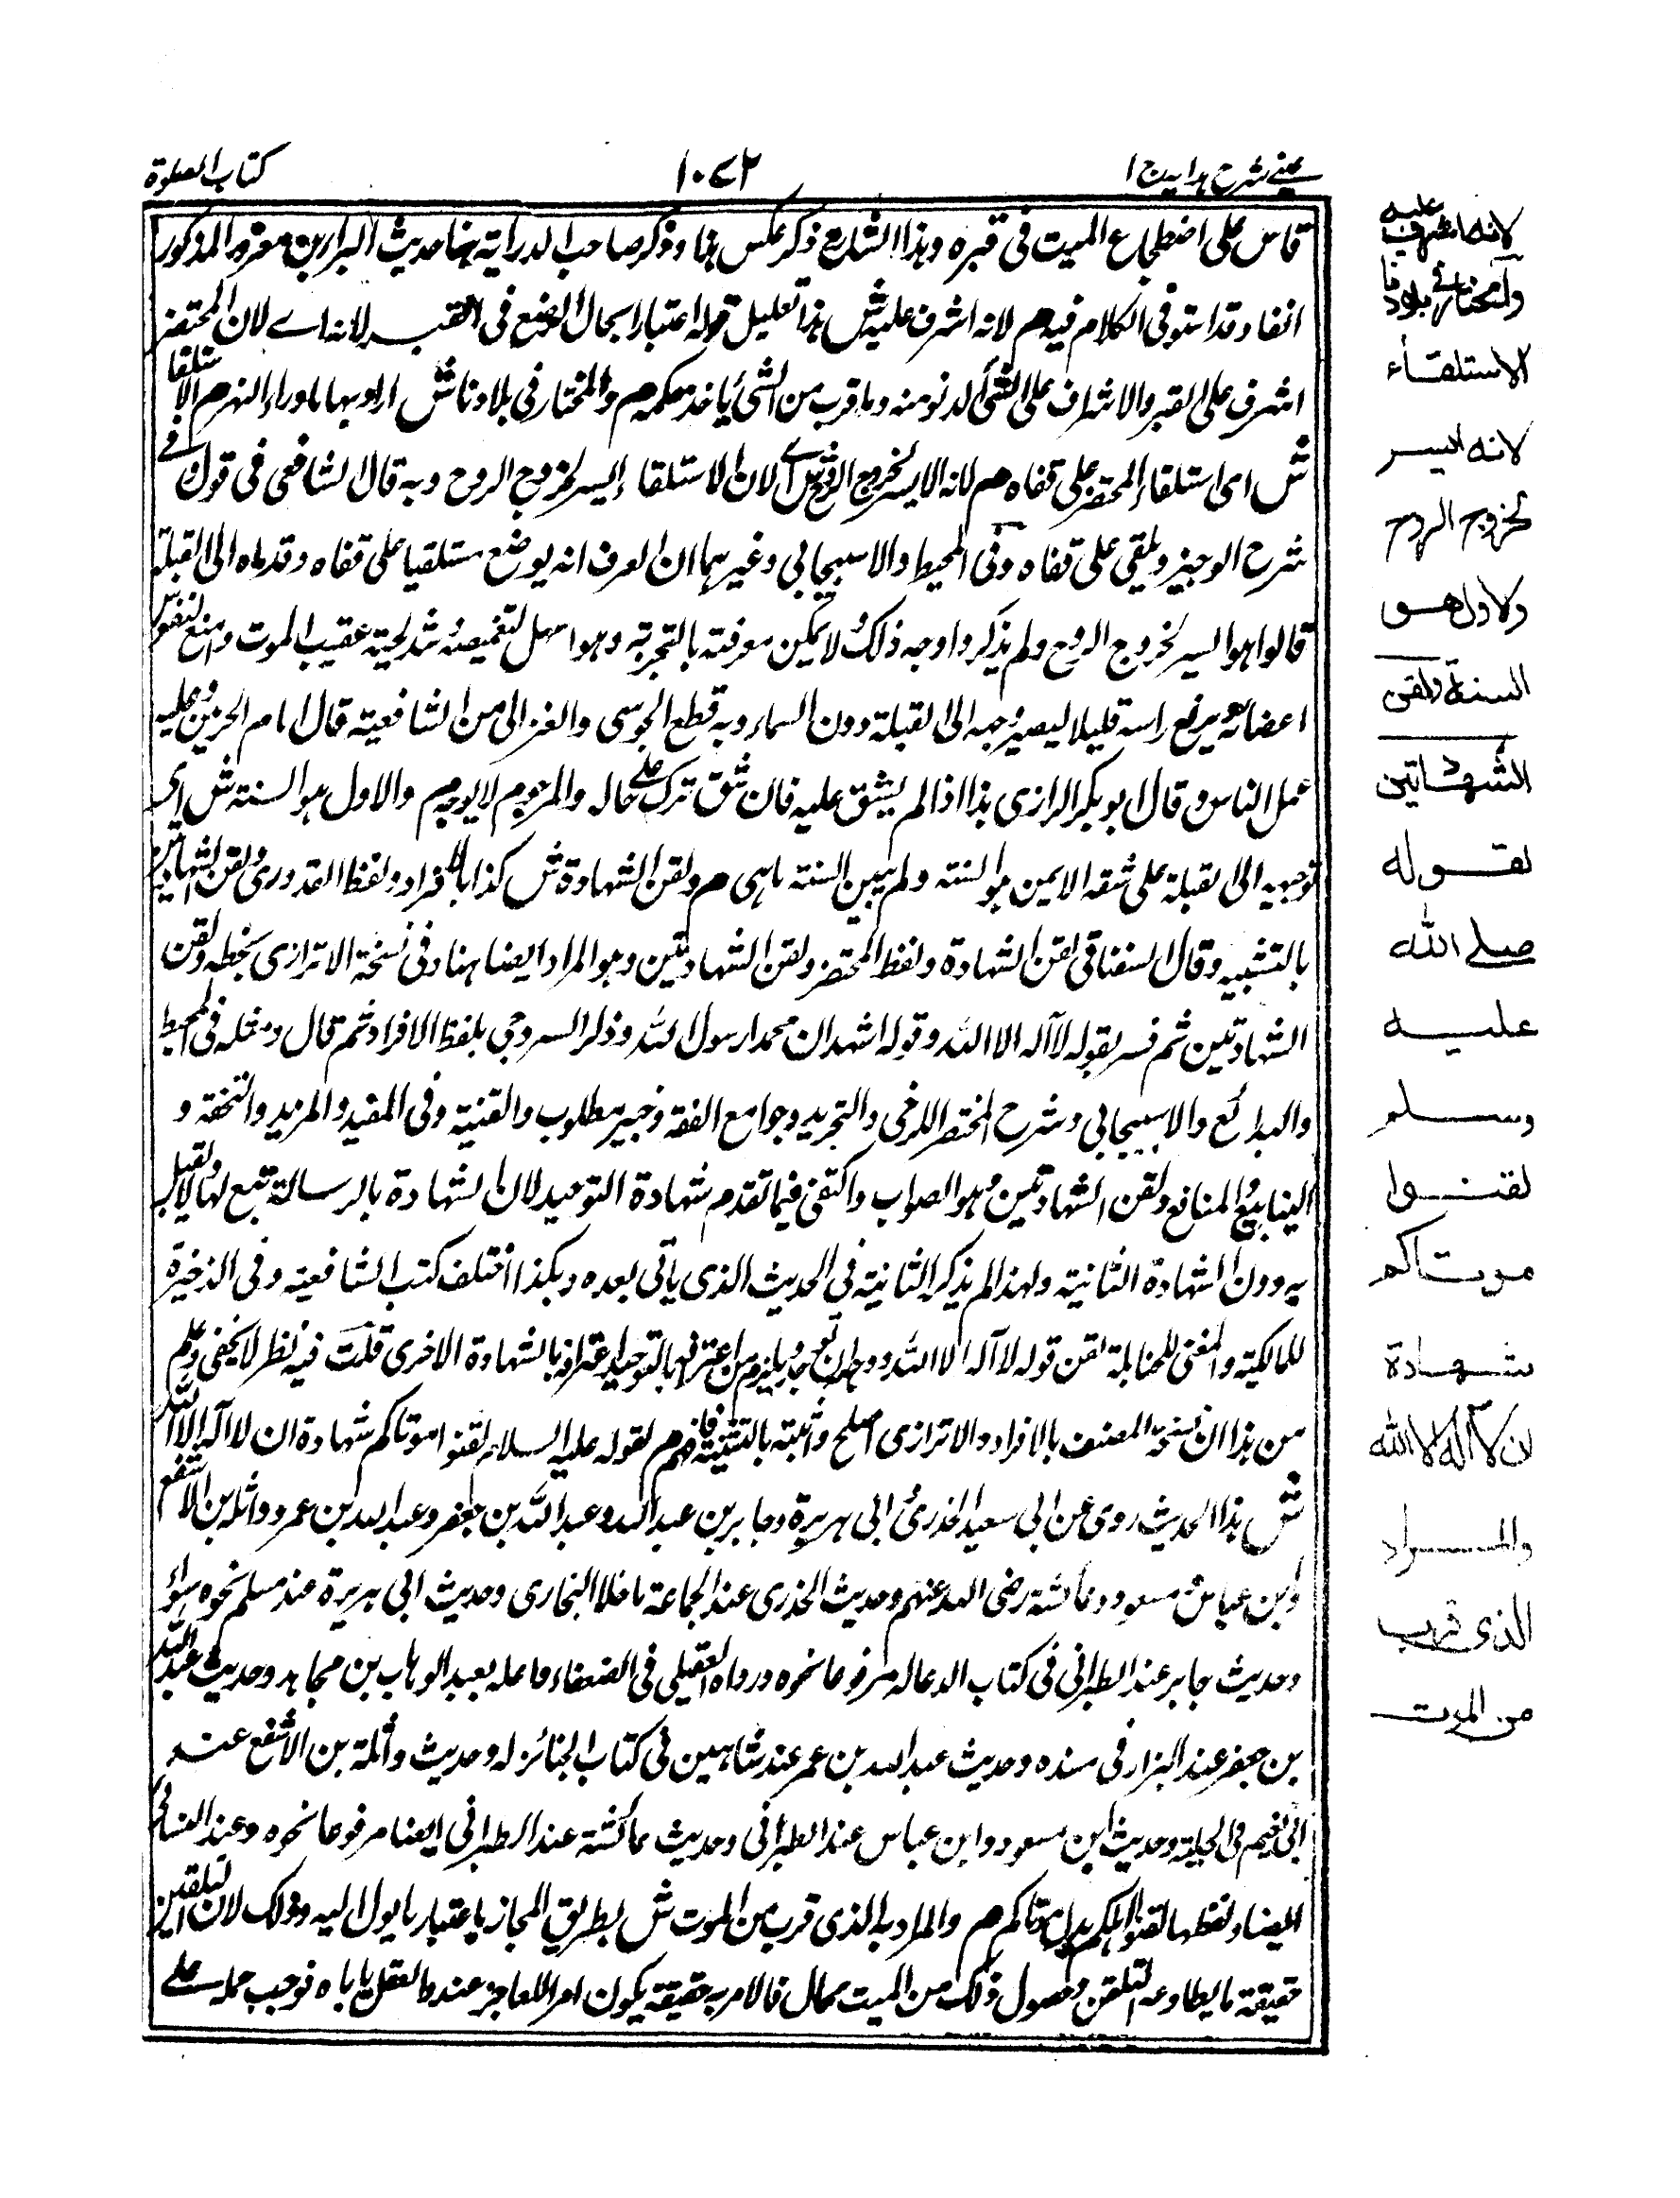 عینے شرح ہدایہ ج ١
١٠٧٢
كتاب الصلوة
قاس على اضطجاع الميت فى قبره وهذا الشارح ذكر عكس هذا وذكر صاحب الدراية ههنا حديث البراء بن معرور المذكور
انفا وقد استوفى الكلام فيه م لانه اشرف عليه ش هذا تعليل قوله اعتبارا بحال الوضع فى القبر لانه اے لان المحتضر
اشرف على القبر والاشراف على الشئ الدنو منه وما قرب من الشئ ياخذ حكمه م والمختار فى بلادنا ش اراد بها ماوراء النهر م الاستلقاء
ش اى استلقاء المحتضر على قفاه م لانه الايسر لخروج الروح ش اے لان الاستلقاء ايسر لخروج الروح وبه قال الشافعى فى قول فے
شرح الوجيز ويلقى على قفاه وفى المحيط والاسبيجابي وغيرهما ان العرف انه يوضع مستلقيا على قفاه وقدماه الى القبلة
قالوا هو ايسر لخروج الروح ولم يذكروا وجه ذلك ولا يمكن معرفته بالتجربة وهو اسهل لتغميضه وشد لحيته عقيب الموت وامنع لتقوس
اعضائه ويرفع راسه قليلا ليصير وجهه الى القبلة دون السماء وبه قطع الجوسى والغزالى من الشافعية قال امام الحرمين وعليه
عمل الناس وقال ابو بكر الرازى هذا اذا لم يشق عليه فان شق ترك على حاله والمرجوم لا يوجه م والاول هو السنة ش اى
توجيهه الى القبلة على شقه الايمن هو السنة ولم يبين السنة ماهى م ولقن الشهادة ش كذا بالافراد ولفظ القدورى ولقن الشهادتين
بالتثنية وقال السغناقى لقن الشهادة ولفظ المختصر ولقن الشهادتين وهو المراد ايضا هنا وفى نسخة الاترازى بخطه ولقن
الشهادتين ثم فسر بقوله لا اله الا الله وقوله اشهد ان محمدا رسول الله وذكر السروجى بلفظ الافراد ثم قال ومثله فى المحيط
والبدائع والاسبيجابي وشرح المختصر الكرخى والتجريد وجوامع الفقه وخير مطلوب والقنية وفى المفيد والمزيد والتحفة و
الينابيع والمنافع ولقن الشهادتين وهو الصواب واكتفى فيما تقدم شهادة التوحيد لان الشهادة بالرسالة تبع لها ولا تقبل
به دون الشهادة الثانية ولهذا لم يذكر الثانية فى الحديث الذى ياتى بعده وهكذا اختلف كتب الشافعية وفى الذخيرة
للمالكية والمغنى للحنابلة لقن قوله لا اله الا الله ووجهه ان يلزم من اعترافه بالتوحيد اعترافه بالشهادة الاخرى قلت فيه نظر لا يخفى وعلم
من هذا ان نسخة المصنف بالافراد والاترازى اصلح واثبته بالتثنية فافهم م لقوله عليه السلام لقنوا موتاكم شهادة ان لا اله الا الله
ش هذا الحديث روى عن ابى سعيد الخدرى وابى هريرة وجابر بن عبد الله وعبد الله بن جعفر وعبد الله بن عمر وواثلة بن الاسقع
وابن عباس وابن مسعود وعائشة رضى الله عنهم وحديث الخدرى عند الجماعة ماخلا البخارى وحديث ابى هريرة عند مسلم نحوه سواء
وحديث جابر عند الطبرانى فى كتاب الدعاء له مرفوعا نحوه ورواه العقيلى فى الضعفاء واعله بعبد الوهاب بن مجاهد وحديث عبد الله
بن جعفر عند البزار فى مسنده وحديث عبد الله بن عمر عند شاهين فى كتاب الجنائز له وحديث واثلة بن الاسقع عند
ابى نعيم فى الحلية وحديث ابن مسعود وابن عباس عند الطبرانى وحديث عائشة عند الطبرانى ايضا مرفوعا نحوه وعند النسائى
ايضا ولفظها لقنوا هلكاكم بدل موتاكم م والمراد به الذى قرب من الموت ش بطريق المجاز باعتبار ما يول اليه وذلك لان التلقين
حقيقة ما يطاوعه التلقن وحصول ذلك من الميت محال فالامر به حقيقة يكون امرا للعاجز عنه والعقل ياباه فوجب حمله على
لانه اشرف عليه
والمختار فے بلادنا
الاستلقاء
لانه ايسر
لخروج الروح
والاول هو
السنة ولقن
الشهادتين
لقوله
صلى الله
عليه
وسلم
لقنوا
موتاكم
شهادة
ان لا اله الا الله
والمراد
الذى قرب
من الموت